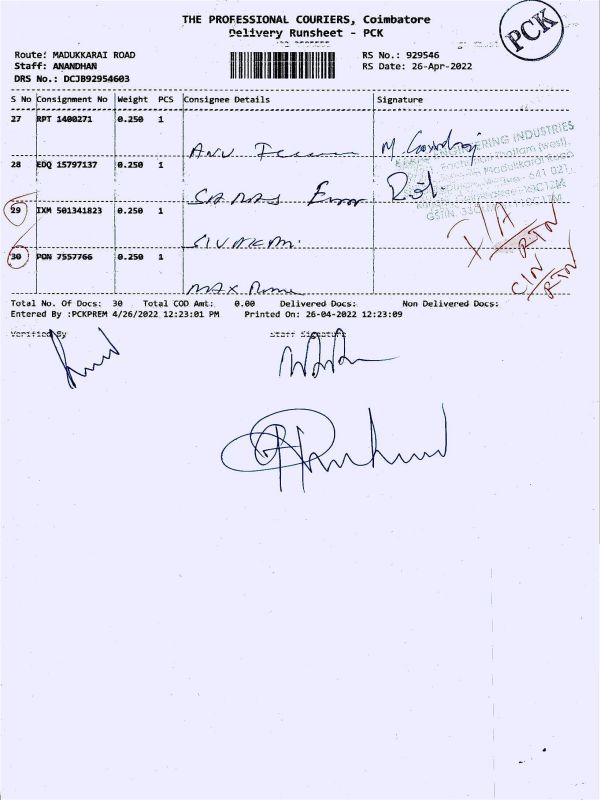 THE PROFESSIONAL COURIERS, Coimbatore
Delivery Runsheet - PCK
PCK
Route: MADUKKARAI ROAD
Staff: ANANDHAN
DRS No.: DCJB92954603
RS No.: 929546
RS Date: 26-Apr-2022
S No Consignment No Weight PCS Consignee Details Signature
27 RPT 1400271 0.250 1
ANU
28 EDQ 15797137 0.250 1
SARAS Error
29 IXM 501341823 0.250 1
SIVAKAMI
I/A RTN
30 PON 7557766 0.250 1
MAX
C/N RTN
ERING INDUSTRIES
Total No. Of Docs: 30 Total COD Amt: 0.00 Delivered Docs: Non Delivered Docs:
Entered By :PCKPREM 4/26/2022 12:23:01 PM Printed On: 26-04-2022 12:23:09
Verified By Staff Signature